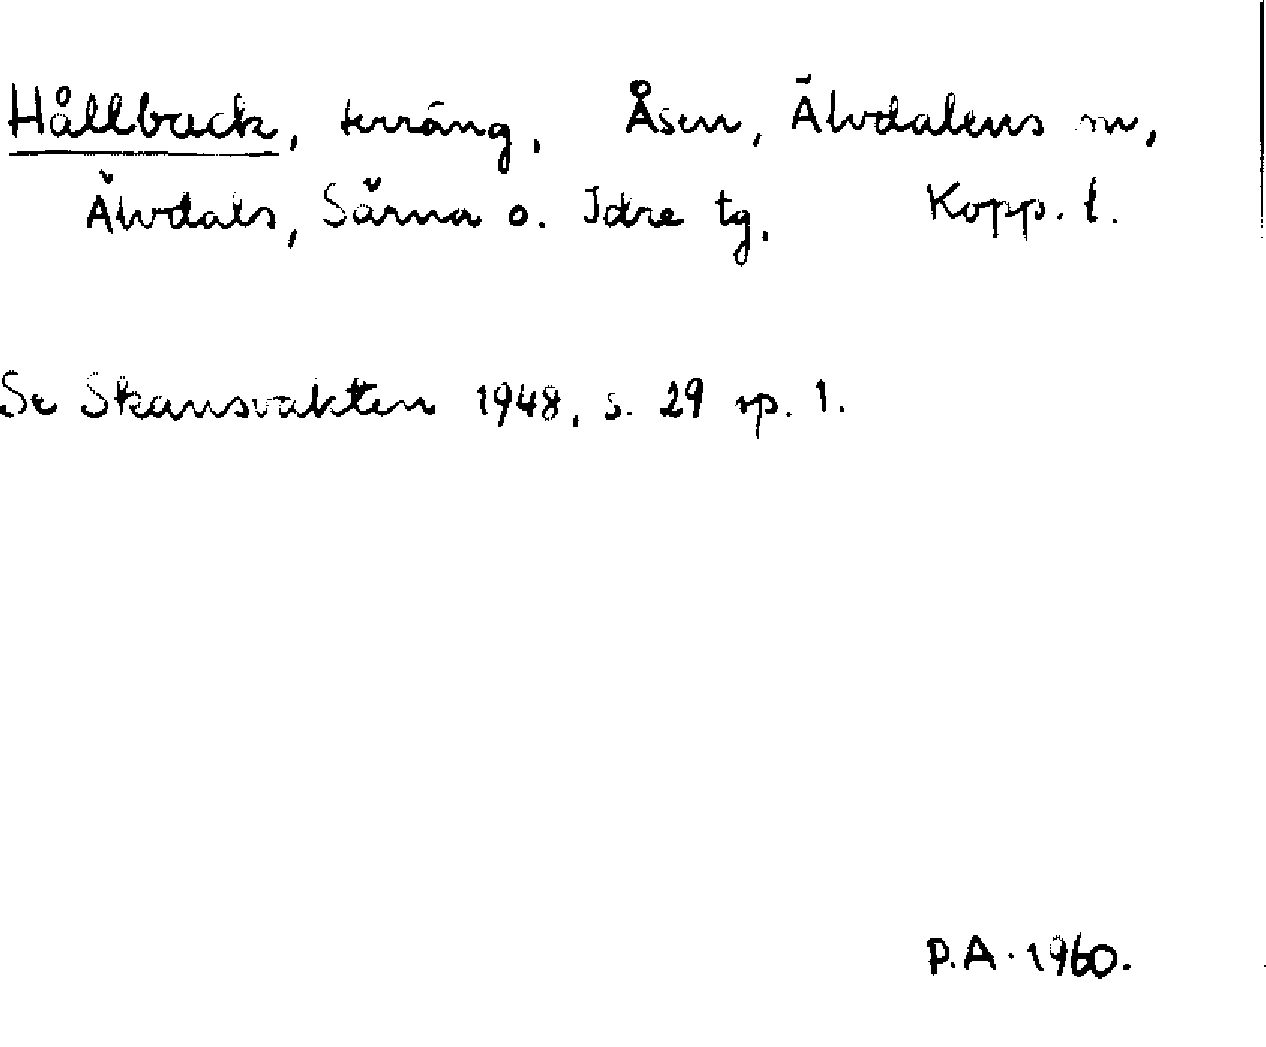 Hållback, terräng, Åsen, Älvdalens sn,
Älvdals, Särna o. Idre tg, Kopp. l.
Se Skansvakten 1948, s. 29 sp. 1.
P.A. 1960.